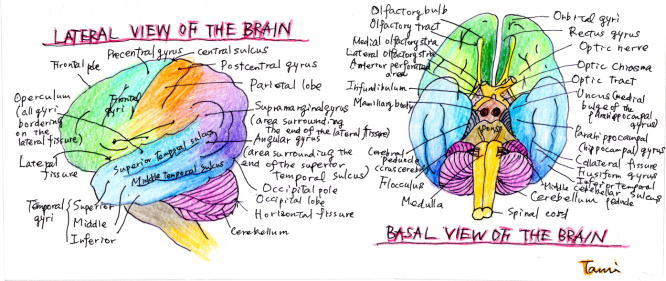 LATERAL VIEW OF THE BRAIN
Precentral gyrus
central sulcus
Postcentral gyrus
Frontal pole
Parietal lobe
Operculum
(all gyri
bordering
on the
lateral fissure)
Frontal
gyri
Supramarginal gyrus
(area surrounding
the end of the lateral fissure)
Angular gyrus
(area surrounding the
end of the superior
Temporal sulcus)
Lateral
fissure
Superior Temporal sulcus
Middle Temporal sulcus
Occipital pole
Occipital lobe
Horizontal fissure
Cerebellum
Temporal
gyri
Superior
Middle
Inferior
Olfactory bulb
Olfactory tract
Medial olfactory stria
Lateral olfactory stria
Anterior perforated
area
Infundibulum
Mamillary body
Cerebral
peduncle
(crus cerebri)
Flocculus
Medulla
Pons
Orbital gyri
Rectus gyrus
Optic nerve
Optic Chiasma
Optic Tract
Uncus (medial
bulge of the
parahippocampal
gyrus)
Parahippocampal
(hippocampal gyrus)
Collateral fissure
Fusiform gyrus
Inferior temporal
sulcus
Middle cerebellar
peduncle
Cerebellum
Spinal cord
BASAL VIEW OF THE BRAIN
Tami